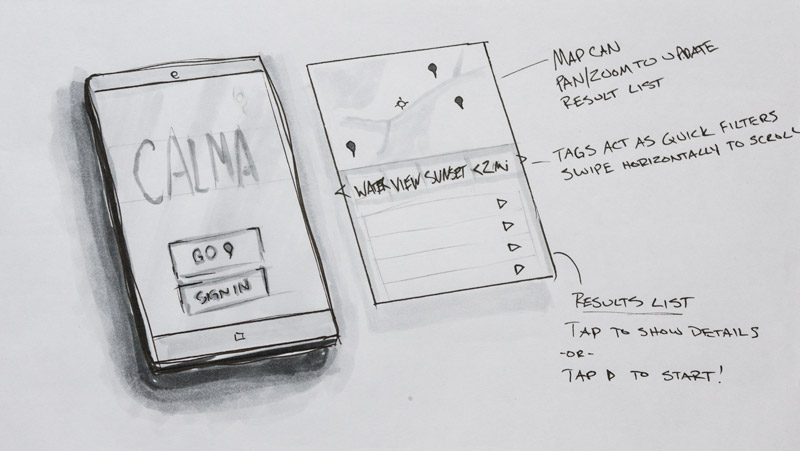 CALMA
GO
SIGN IN
WATER VIEW SUNSET <2 mi
MAP CAN
PAN/ZOOM TO UPDATE
RESULT LIST
TAGS ACT AS QUICK FILTERS
SWIPE HORIZONTALLY TO SCROLL
RESULTS LIST
TAP TO SHOW DETAILS
-OR-
TAP ▷ TO START!